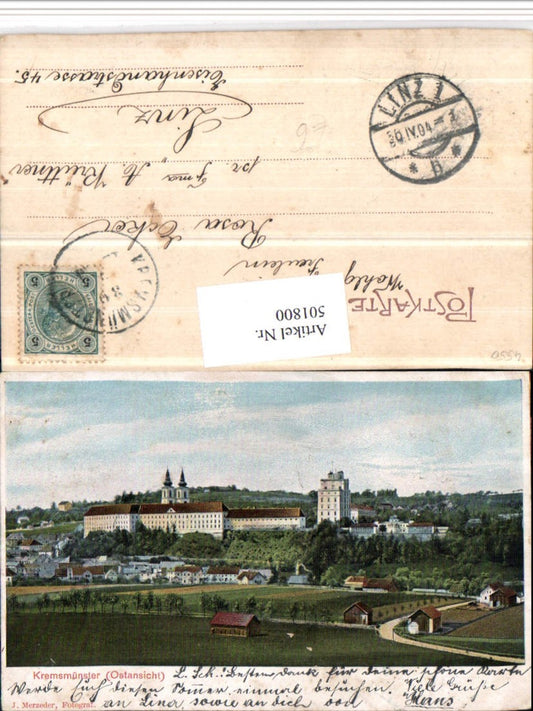 POSTKARTE
Wohlg.
Fräulein
Rosa Ecker
pr Fma A. Krüttner
Linz
Eisenhandstrasse 45.
LINZ 1
30.IV.04
* B *
KREMSMÜNSTER
5 5
5 5
Artikel Nr.
501800
Kremsmünster (Ostansicht) L. Sch.: Besten Dank für Deine schöne Karte
Werde Euch diesen Sommer einmal besuchen. Viele Grüße
J. Merzeder, Fotograf. an Lina sowie an dich von Hans